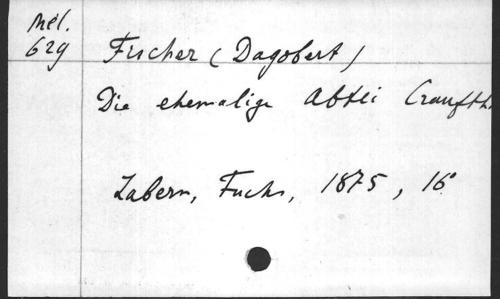 Mél.
629
Fischer (Dagobert)
Die ehemalige Abtei Craufth
Zabern, Fuchs, 1875, 16°